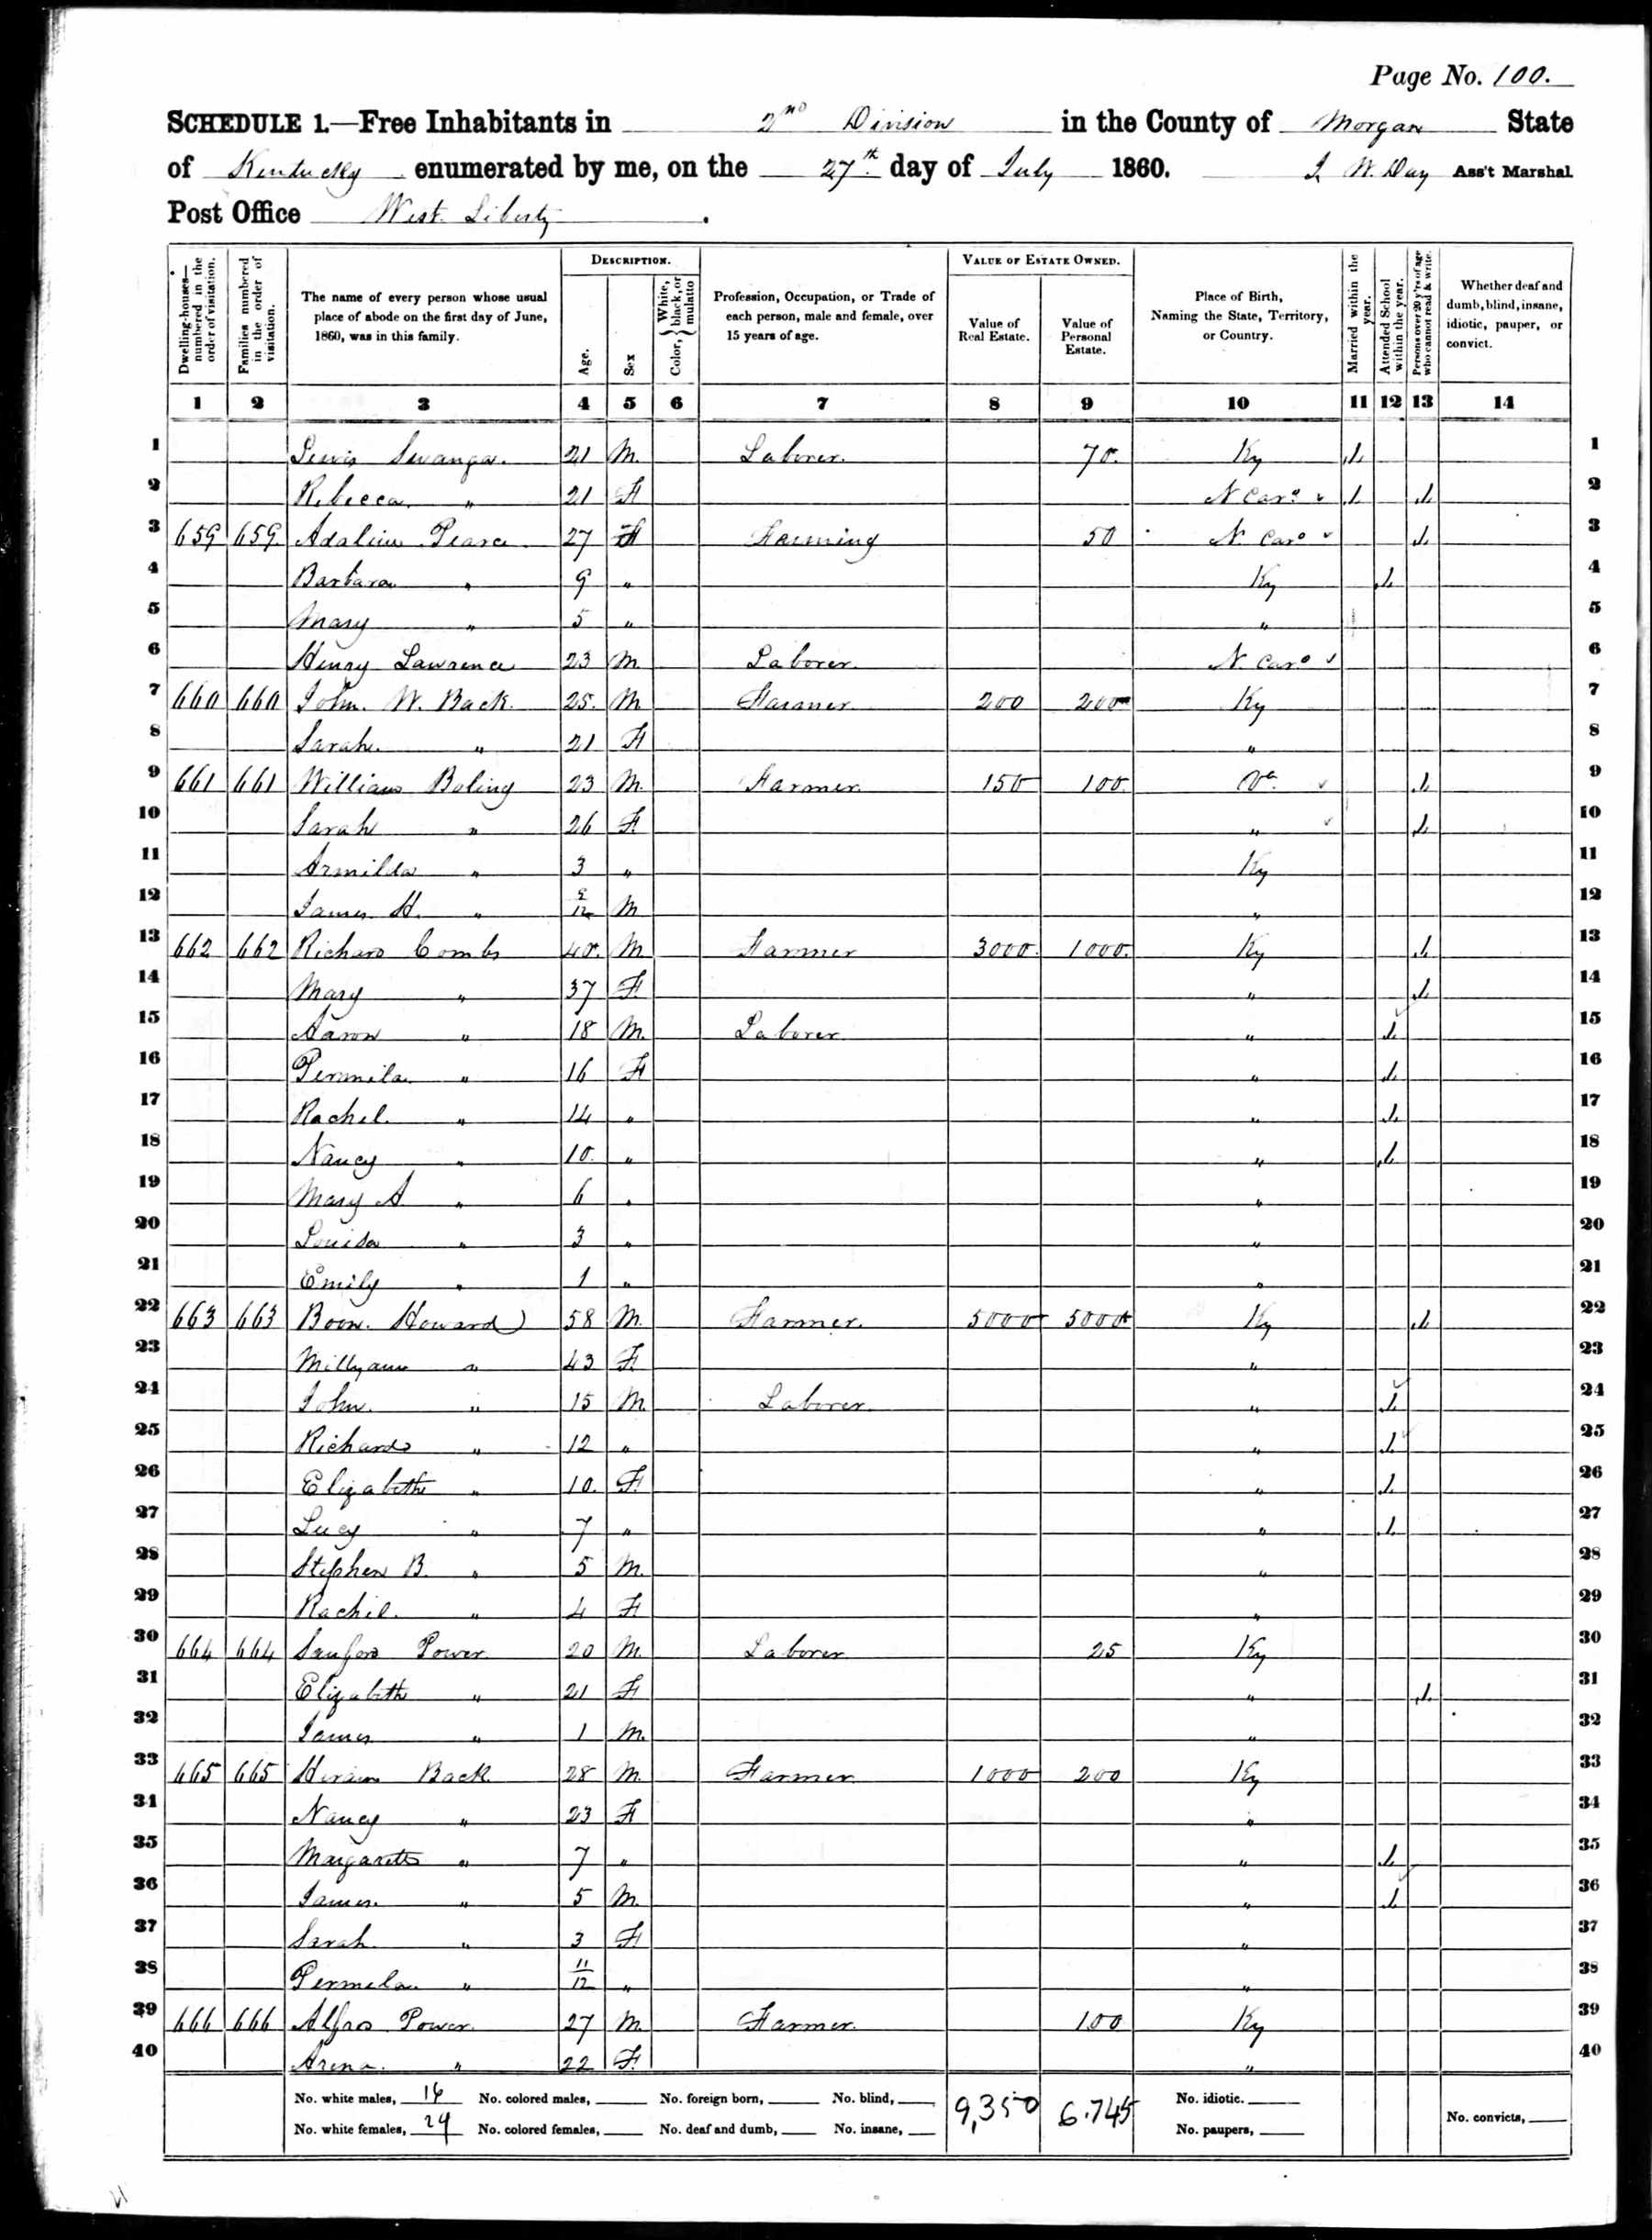 Page No. 100.
SCHEDULE 1.—Free Inhabitants in 2nd Division in the County of Morgan State
of Kentucky enumerated by me, on the 27th day of July 1860. J. W. Day Ass't Marshal.
Post Office West Liberty.
Dwelling-houses—numbered in the order of visitation.
Families numbered in the order of visitation.
The name of every person whose usual place of abode on the first day of June, 1860, was in this family.
DESCRIPTION.
Age.
Sex
Color, { White, black, or mulatto
Profession, Occupation, or Trade of each person, male and female, over 15 years of age.
VALUE OF ESTATE OWNED.
Value of Real Estate.
Value of Personal Estate.
Place of Birth, Naming the State, Territory, or Country.
Married within the year.
Attended School within the year.
Persons over 20 y'rs of age who cannot read & write.
Whether deaf and dumb, blind, insane, idiotic, pauper, or convict.
1 2 3 4 5 6 7 8 9 10 11 12 13 14
1 Lewis Swanga. 21 M. Laborer. 70. Ky 1 1
2 Rebecca " 21 F N Caro 1 1 2
3 659 659 Adaline Pearce 27 F Farming 50 N. Caro 1 3
4 Barbara " 9 " Ky 1 4
5 Mary " 5 " " 5
6 Henry Lawrence 23 M Laborer N. Caro 6
7 660 660 John. W. Back. 25. M Farmer 200 200 Ky 7
8 Sarah " 21 F " 8
9 661 661 William Boling 23 M. Farmer 150 100. Va 1 9
10 Sarah " 26 F. " 1 10
11 Armilda " 3 " Ky 11
12 James H. " 9/12 M " 12
13 662 662 Richard Combs 40. M Farmer 3000. 1000. Ky 1 13
14 Mary " 37 F. " 1 14
15 Aaron " 18 M. Laborer " 1 15
16 Permila " 16 F " 1 16
17 Rachel. " 14 " " 1 17
18 Nancy " 10. " " 1 18
19 Mary A " 6 " " 19
20 Louisa " 3 " " 20
21 Emily " 1 " " 21
22 663 663 Boon. Howard 58 M. Farmer. 5000 5000 Ky 1 22
23 Millyann " 43 F. " 23
24 John. " 15 M. Laborer. " 1 24
25 Richard " 12 " " 1 25
26 Elizabeth " 10. F. " 1 26
27 Lucy " 7 " " 1 27
28 Stephen B. " 5 M. " 28
29 Rachel. " 4 F " 29
30 664 664 Sanford Power 20 M. Laborer 25 Ky 30
31 Elizabeth " 21 F " 1 31
32 James " 1 M. " 32
33 665 665 Hiram Back 28 M. Farmer 1000 200 Ky 33
34 Nancy " 23 F " 34
35 Margarett " 7 " " 1 35
36 James. " 5 M. " 1 36
37 Sarah " 3 F " 37
38 Permela " 11/12 " " 38
39 666 666 Alfred Power. 27 M. Farmer. 100 Ky 39
40 Arena. " 22 F. " 40
No. white males, 16 No. colored males, No. foreign born, No. blind, 9,350 6.745 No. idiotic.
No. white females, 24 No. colored females, No. deaf and dumb, No. insane, No. paupers, No. convicts,